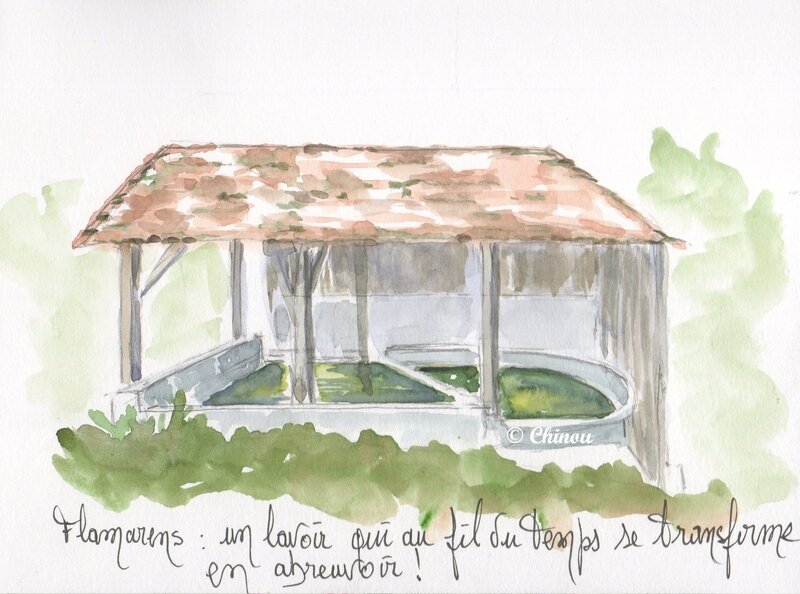 © Chinou
Flamarens : un lavoir qui au fil du temps se transforme
en abreuvoir !